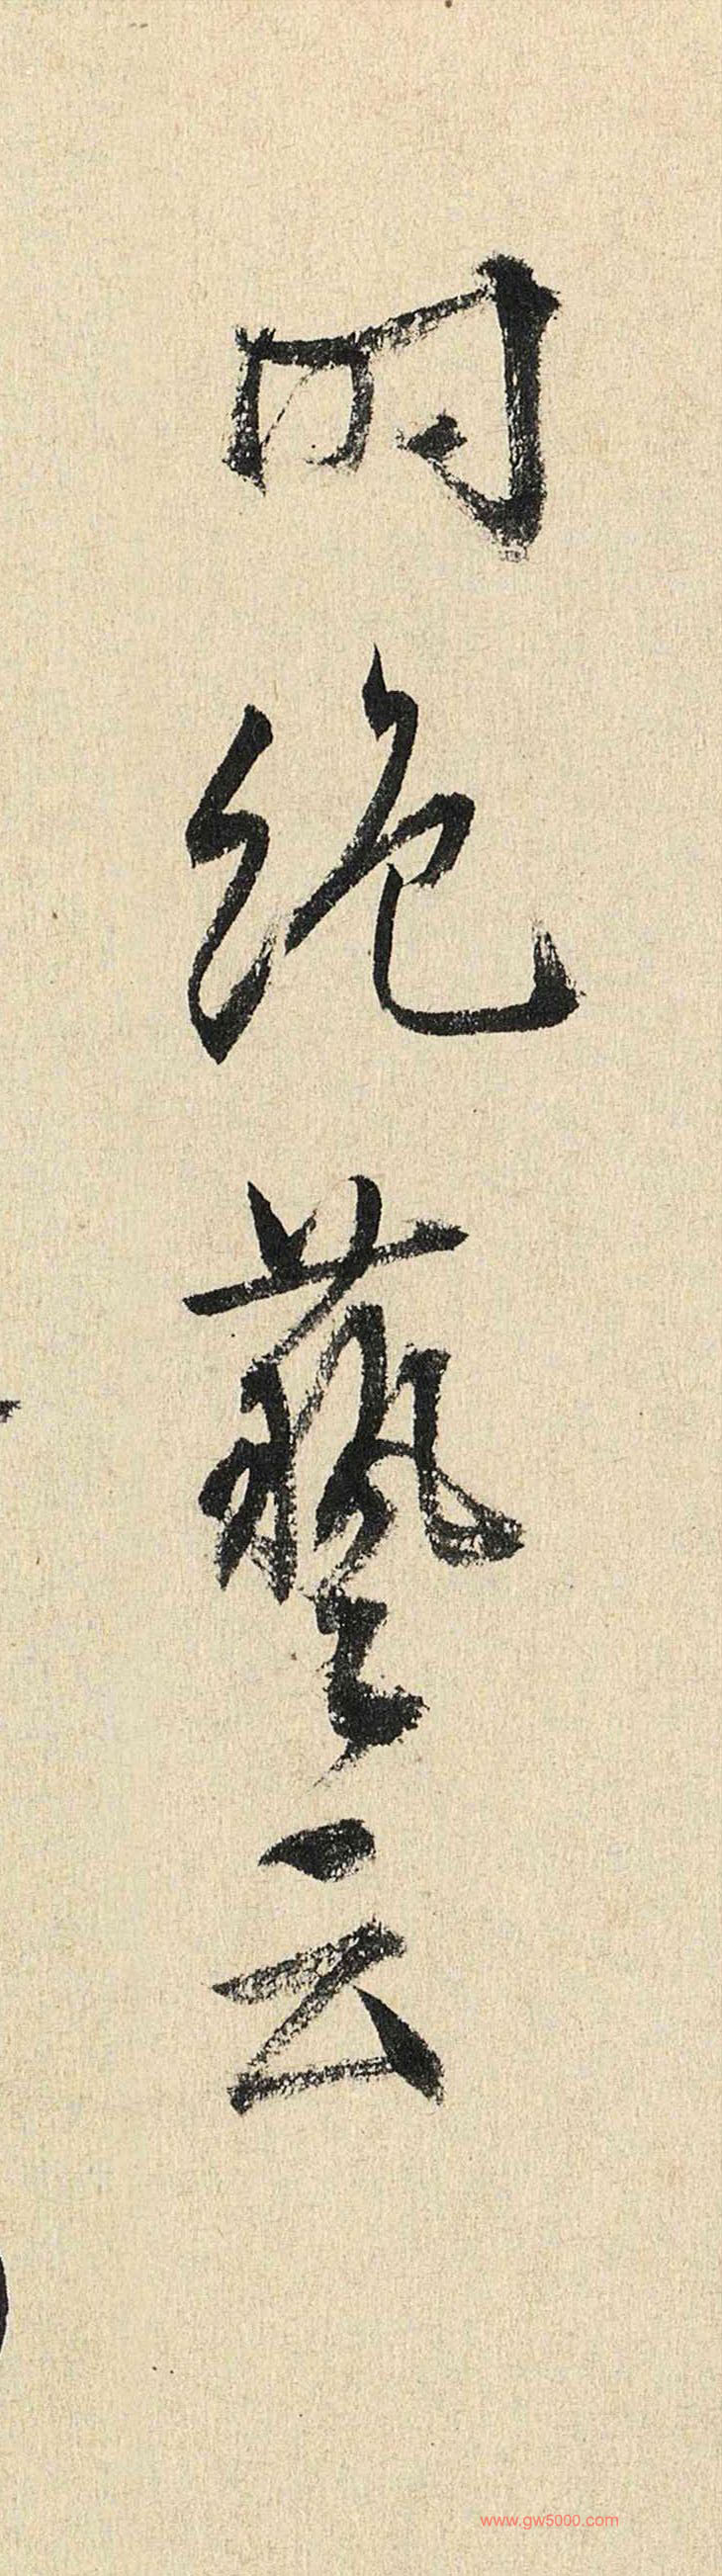 时绝藝云
www.gw5000.com